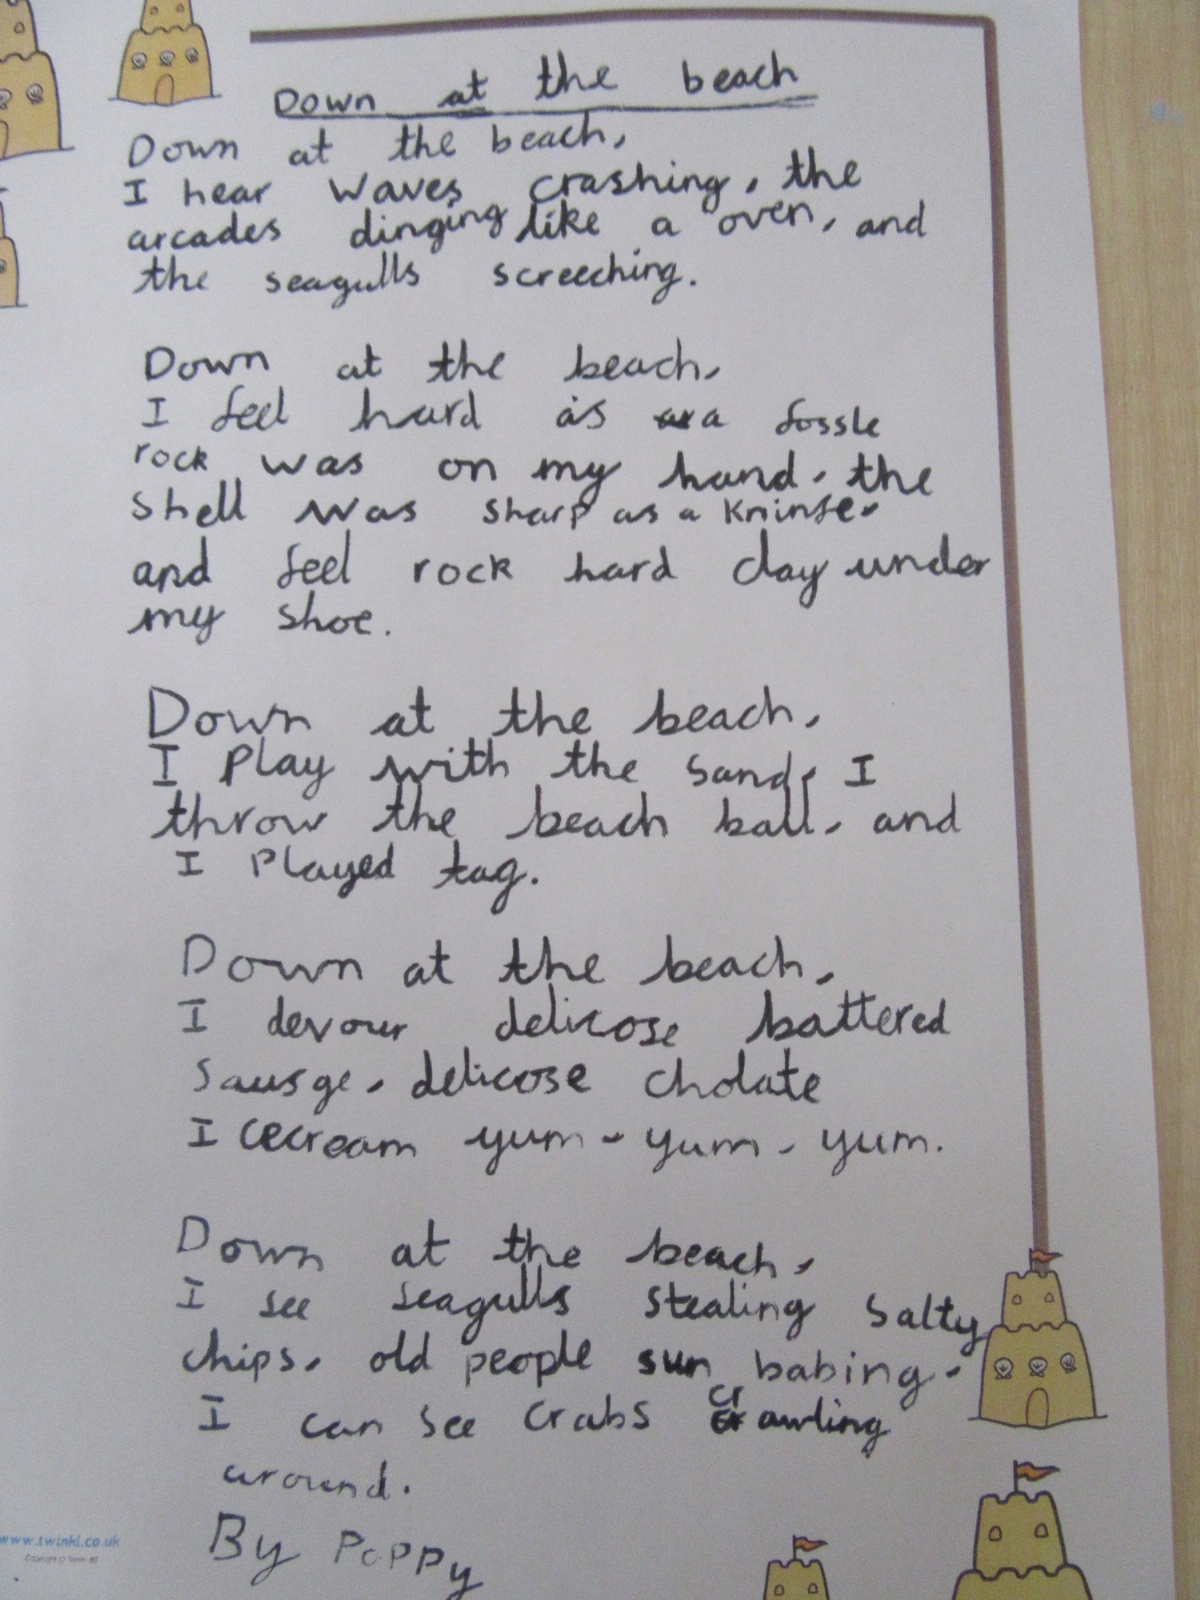 Down at the beach
Down at the beach,
I hear waves crashing, the
arcades dinging like a oven, and
the seagulls screeching.
Down at the beach,
I feel hard as a fossle
rock was on my hand, the
shell was sharp as a kninfe,
and feel rock hard clay under
my shoe.
Down at the beach,
I play with the sand, I
throw the beach ball, and
I played tag.
Down at the beach,
I devour delicose battered
sausge, delicose cholate
Icecream yum-yum-yum.
Down at the beach,
I see seagulls stealing salty
chips, old people sun babing,
I can see crabs crawling
around.
By Poppy
www.twinkl.co.uk